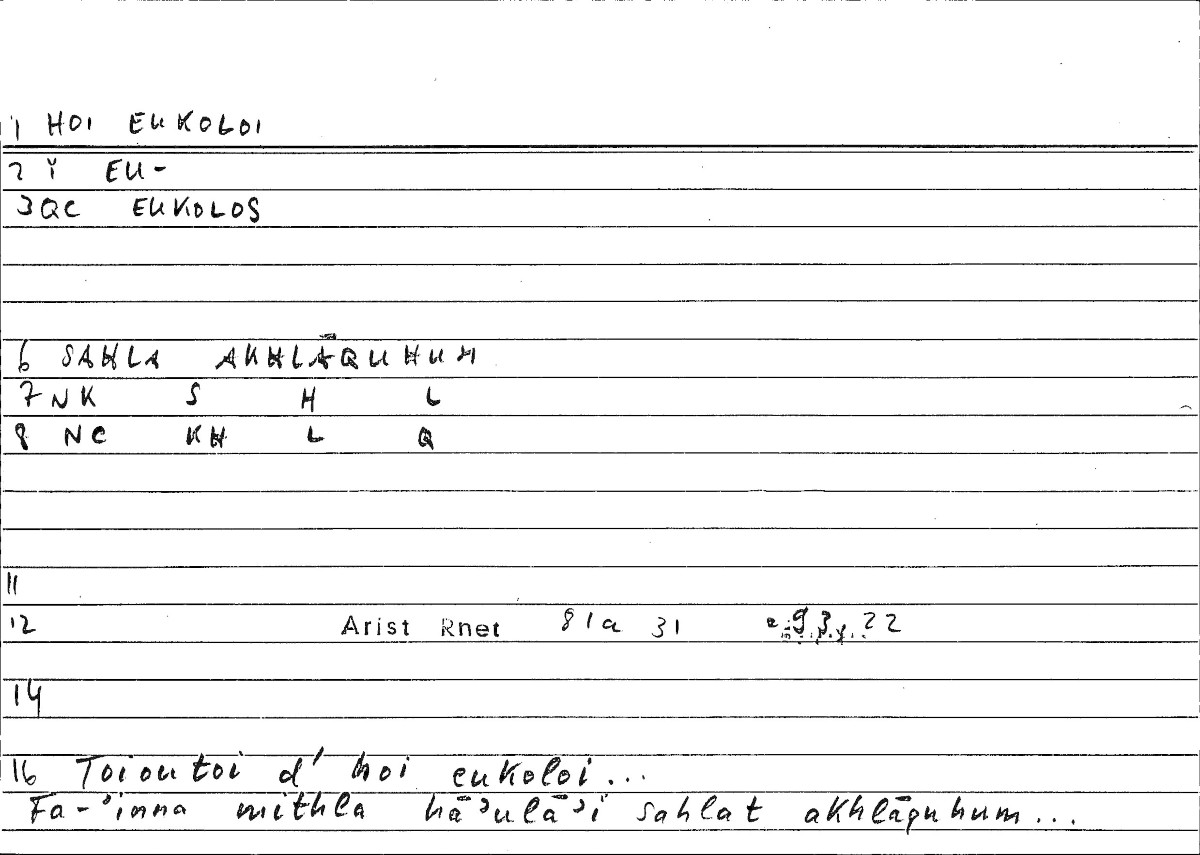 1 HOI EUKOLOI
2 Y EU-
3 QC EUKOLOS
6 SAHLA AKHLĀQUHUM
7 NK S H L
8 NC KH L Q
11
12 Arist Rnet 81a 31 93, 22
14
16 Toioutoi d' hoi eukoloi...
Fa-'inna mithla hā'ulā'i sahlat akhlāquhum...